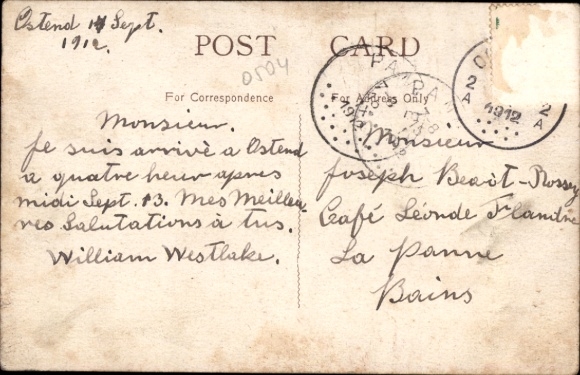 Ostend 14 Sept.
1912.
POST CARD
0504
For Correspondence
For Address Only
Monsieur.
Je suis arrivè a Ostend
a quatre heur apres
midi Sept. 13. Mes Meilleu-
res Salutations à tus.
William Westlake.
Monsieur
Joseph
Cafè Léonde Flandre
La Panne
Bains
1912
2 A
1912
2 A